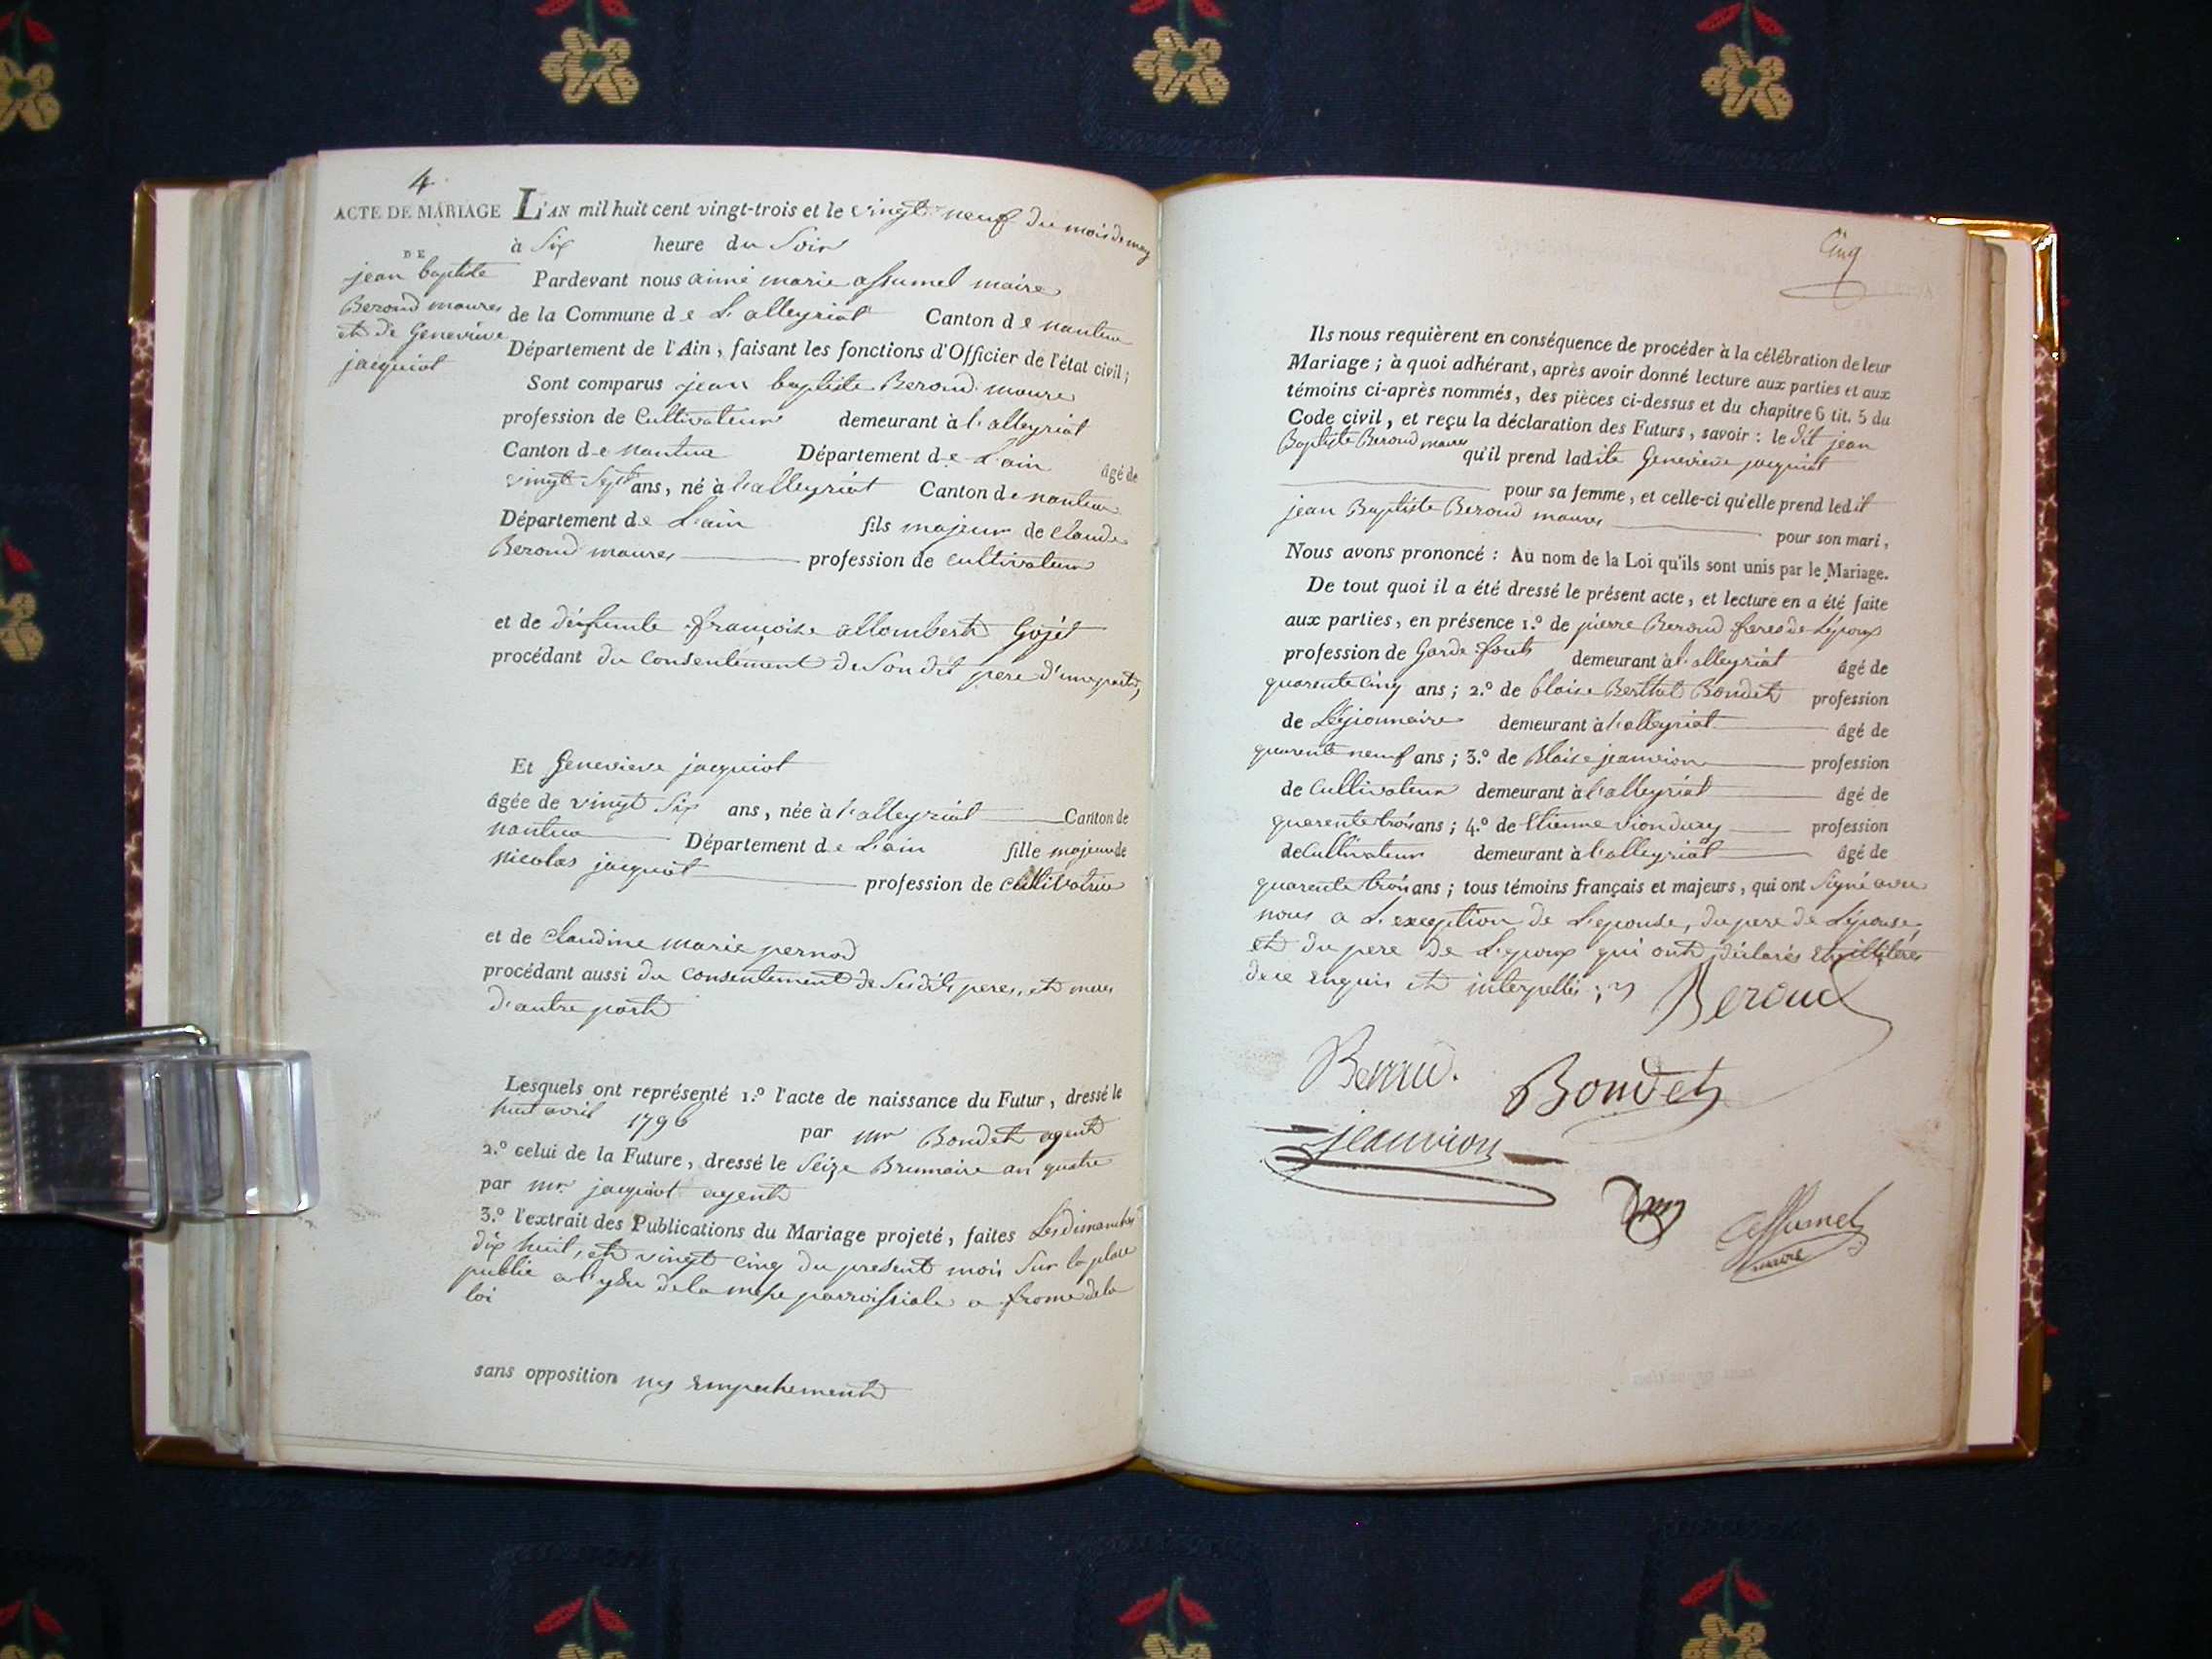 4
ACTE DE MARIAGE
DE
jean baptiste
Beroud maures
et de Genevieve
jacquiot
L'AN mil huit cent vingt-trois et le vingt neuf du mois de may
à Six heure du Soir
Pardevant nous aimé marie assumel maire
de la Commune de L'alleyriat Canton de nantua
Département de l'Ain, faisant les fonctions d'Officier de l'état civil;
Sont comparus jean baptiste Beroud maure
profession de Cultivateur demeurant à l'alleyriat
Canton de nantua Département de L'ain âgé de
vingt Sept ans, né à l'alleyriat Canton de nantua
Département de L'ain fils majeur de Claude
Beroud maures profession de cultivateur
et de défunte françoise allombert Gojet
procédant du Consentement de Son dit pere d'une part,
Et Genevieve jacquiot
âgée de vingt Six ans, née à l'alleyriat Canton de
nantua Département de L'ain fille majeur de
nicolas jacquiot profession de cultivatrice
et de Claudine marie pernod
procédant aussi du Consentement de Sesdits peres, et meres
d'autre part
Lesquels ont représenté 1.º l'acte de naissance du Futur, dressé le
huit avril 1796 par mr Bondet agent
2.º celui de la Future, dressé le Seize Brumaire an quatre
par mr. jacquiot agent
3.º l'extrait des Publications du Mariage projeté, faites Les dimanches
dix huit, et vingt cinq du present mois Sur la place
publie a l'ysu de la messe parroissiale a frome de la
loi
sans opposition ny Empechement
Cinq
Ils nous requièrent en conséquence de procéder à la célébration de leur
Mariage; à quoi adhérant, après avoir donné lecture aux parties et aux
témoins ci-après nommés, des pièces ci-dessus et du chapitre 6 tit. 5 du
Code civil, et reçu la déclaration des Futurs, savoir: le dit jean
Baptiste Beroud maures qu'il prend ladite Genevieve jacquiot
pour sa femme, et celle-ci qu'elle prend ledit
jean Baptiste Beroud maures pour son mari,
Nous avons prononcé: Au nom de la Loi qu'ils sont unis par le Mariage.
De tout quoi il a été dressé le présent acte, et lecture en a été faite
aux parties, en présence 1.º de pierre Beroud freres de L'époux
profession de Garde fouts demeurant à l'alleyriat âgé de
quarente cinq ans; 2.º de blaise Berthet Bondet profession
de Légionnaire demeurant à l'alleyriat âgé de
quarente neuf ans; 3.º de Blaise jeanvion profession
de Cultivateur demeurant à l'alleyriat âgé de
quarente trois ans; 4.º de Etienne viondury profession
de Cultivateur demeurant à l'alleyriat âgé de
quarente trois ans; tous témoins français et majeurs, qui ont Signé avec
nous a L'exception de L'epouse, du pere de L'épouse,
et du pere de L'epoux qui ont déclarés Etre illiterés
de ce Enquis et interpellés;
Beroud
Beroud.
Bondet
jeanvion
assumel
maire